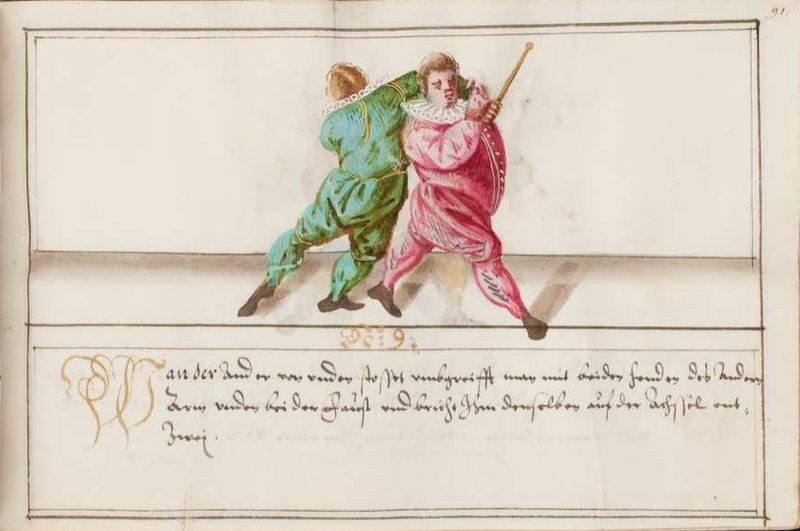 91.
No: 92
Wan der Ander von unden stosset umbgreifft man mit beiden henden des Andern
Arm unden bei der Faust und bricht Ihm denselben auf der Achssel ent,
Zwei.